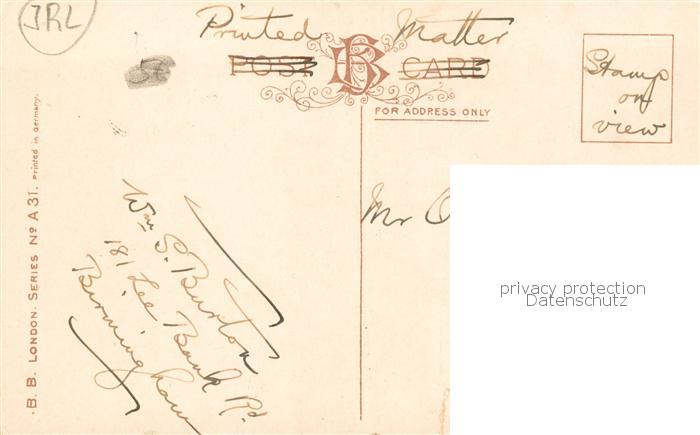 IRL
Printed Matter
POST BB CARD
FOR ADDRESS ONLY
Stamp
on
view
B. B. LONDON. SERIES Nº A 31. Printed in Germany.
Mr O
Wm S. Burton
181 Lee Bank Rd
Birmingham
privacy protection
Datenschutz